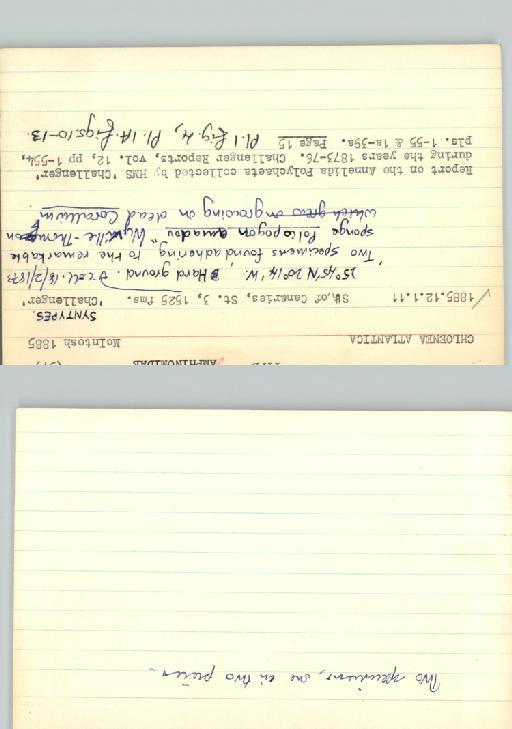 AMPHINOMIDAE
CHLOENEA ATLANTICA McIntosh 1885
SYNTYPES
1885.12.1.11 SW. of Canaries, St. 3, 1525 fms. 'Challenger'
25°45'N 20°14'W. Hard ground. coll. 18/2/1873
"Two specimens found adhering to the remarkable
sponge Poliopogon amadou Wyville-Thomson
which grows on growing on dead Corallium
Report on the Annelida Polychaeta collected by HMS 'Challenger'
during the years 1873-76. Challenger Reports, vol. 12, pp 1-554,
pls. 1-55 & 1a-39a. Page 15 Pl. 1 fig. 4, Pl. 1A figs. 10-13
Two specimens, one in two pieces.